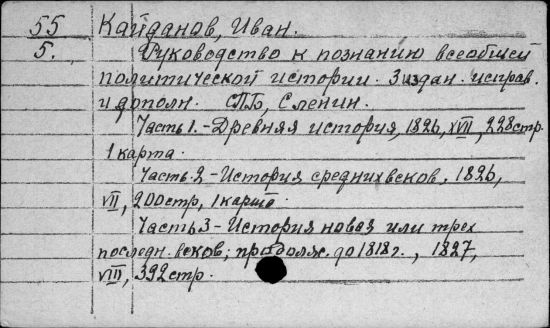 55 Кайданов, Иван.
5. Руководство к познанию всеобщей
политической истории. 3 издан. исправ.
и дополн. СПБ, Сленин.
Часть 1. - Древняя история, 1826, XVII, 228 стр.
1 карта.
Часть 2 - История средних веков, 1826,
VII, 200 стр, 1 карта.
Часть 3 - История новая или трех
последн. веков; продолж. до 1818 г., 1827,
VIII, 392 стр.